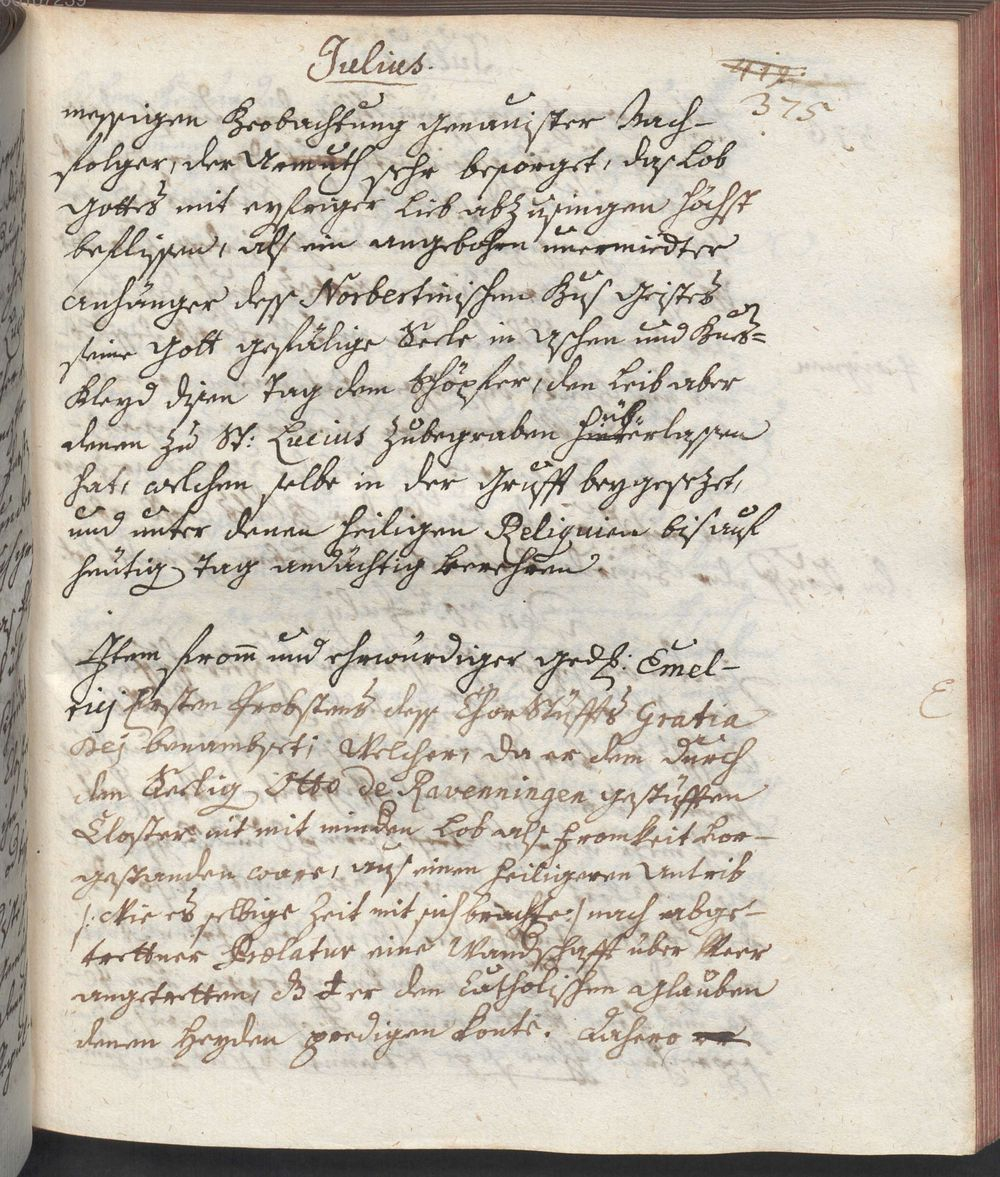 Julius.
417.
375
messigen Beobachtung genauister Nach-
folger, der Armuth sehr besorget, das Lob
Gottes mit eyfriger Lieb abzusingen höchst
beflissen, als ein angebohrn unermiedter
anhänger dess Norbertinischen Bus Geistes
seine Gott gefällige Seele in aschen und Bues=
Kleyd disen Tag dem Schöpfer, den Leib aber
denen zu St: Lucius zubegraben überlassen
hat, welchen selbe in der Grufft beygesezet,
und unter denen heiligen Reliquien bis auf
heutig Tag andächtig verehren
Item from und ehrwürdiger gedh: Emel-
rici Ersten Probstens dess Chor Stüffts Gratia
Dej benambset; Welcher, da er dem durch
den Seelig Otto de Ravenningen gestüfften
Closter nit mit minden Lob als fromkeit vor-
gestanden ware, aus einen heiligeren antrib
/: Wie es selbige Zeit mit sich brachte :/ nach abge-
trettner Prælatur eine Wandschafft über Meer
angetretten, er den Catholischen glauben
denen Heyden predigen konte. Dahero
E